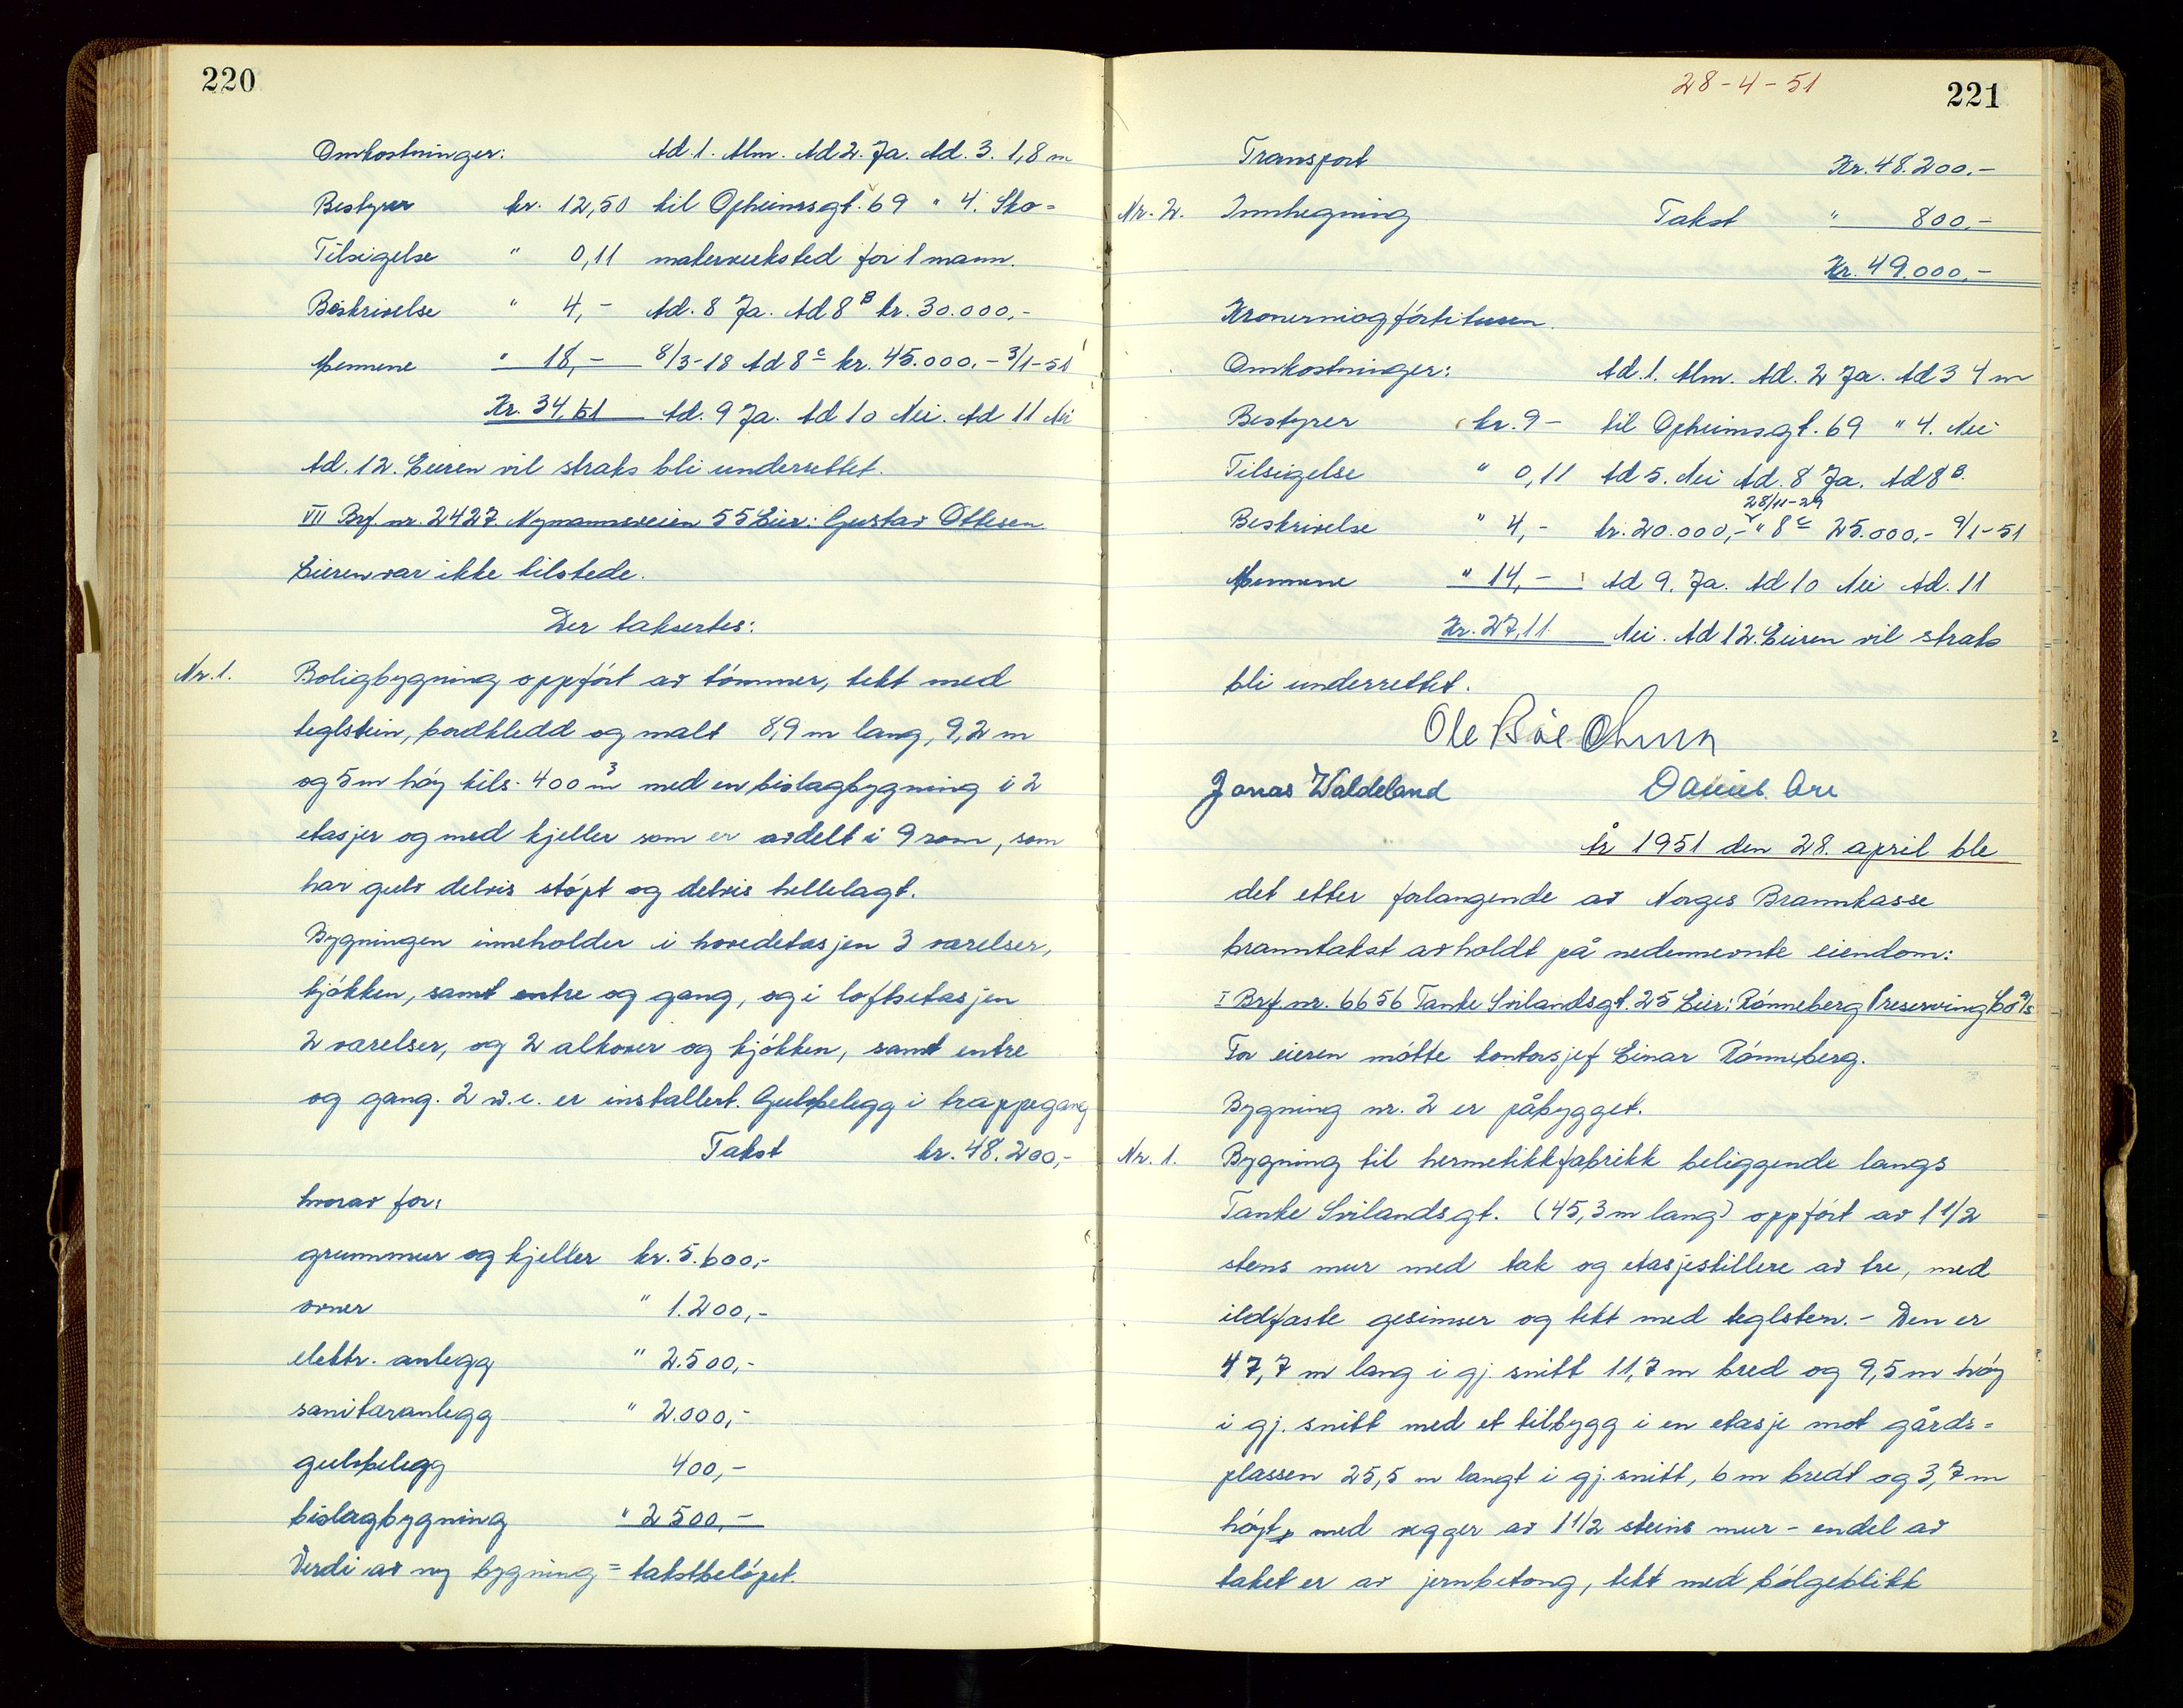 220
Omkostninger: Ad. 1. Alm. Ad 2. Ja. Ad. 3. 1,8 m
Bestyrer kr. 12,50 til Opheimsgt. 69 " 4. Sko-
Tilsigelse " 0,11 makerverksted for 1 mann.
Beskrivelse " 4,- Ad. 8 Ja. Ad 8 B kr. 30.000,-
Mennene " 18,- 8/3-18 Ad 8 c kr. 45.000.- 3/1-51
Kr. 34,61 Ad. 9 Ja. Ad 10 Nei. Ad 11 Nei
Ad. 12. Eieren vil straks bli underrettet.
VII Brf. nr. 2427 Nymannsveien 55 Eier: Gustav Ottesen
Eieren var ikke tilstede.
Der taksertes:
Nr. 1. Boligbygning oppført av tømmer, tekt med
teglstein, bordkledd og malt 8,9 m lang, 9,2 m
og 5 m høy tils. 400 m3 med en bislagbygning i 2
etasjer og med kjeller som er avdelt i 9 rom, som
har gulv delvis støpt og delvis hellelagt.
Bygningen inneholder i hovedetasjen 3 værelser,
kjøkken, samt entre og gang, og i loftsetasjen
2 værelser, og 2 alkover og kjøkken, samt entre
og gang. 2 w.c. er installert. Gulvbelegg i trappegang
Takst kr. 48.200,-
hvorav for:
grunnmur og kjeller kr. 5.600,-
ovner " 1.200,-
elektr. anlegg " 2.500,-
sanitæranlegg " 2.000,-
gulvbelegg 400,-
bislagbygning " 2500,-
Verdi av ny bygning = takstbeløpet.
28-4-51
221
Transport Kr. 48.200.-
Nr. 2. Innhegning Takst " 800,-
Kr. 49.000,-
Kronerniogførtitusen.
Omkostninger: Ad. 1. Alm. Ad. 2 Ja. Ad 3 4 m
Bestyrer kr. 9- til Opheimsgt. 69 " 4. Nei
Tilsigelse " 0,11 Ad 5. Nei Ad. 8 Ja. Ad 8 B.
28/11-29
Beskrivelse " 4,- kr. 20.000,- " 8 c 25.000,- 9/1-51
Mennene " 14,- Ad 9. Ja. Ad 10 Nei Ad. 11
Kr. 27,11 Nei. Ad 12. Eieren vil straks
bli underrettet.
Ole Bøe
Jonas Waldeland Daniel
År 1951 den 28. april ble
det etter forlangende av Norges Brannkasse
branntakst avholdt på nedennevnte eiendom:
I Brf. nr. 6656 Tanke Svilandsgt. 25 Eier: Rønneberg Preserving Co a/s
For eieren møtte kontorsjef Einar Rønneberg.
Bygning nr. 2 er påbygget.
Nr. 1. Bygning til hermetikkfabrikk beliggende langs
Tanke Svilandsgt. (45,3 m lang) oppført av 1 1/2
stens mur med tak og etasjestillere av tre, med
ildfaste gesimser og tekt med teglsten. - Den er
47,7 m lang i gj. snitt 11,7 m bred og 9,5 m høy
i gj. snitt med et tilbygg i en etasje mot gårds-
plassen 25,5 m langt i gj. snitt, 6 m bredt og 3,7 m
høyt, med vegger av 1 1/2 steins mur - endel av
taket er av jernbetong, tekt med bølgeblikk